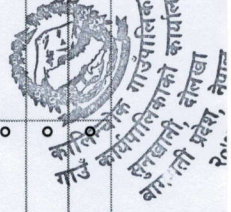 कालिन्चोक गाउँपालिका
गाउँ कार्यपालिकाको कार्यालय
सुनखानी दोलखा
बागमती प्रदेश, नेपाल